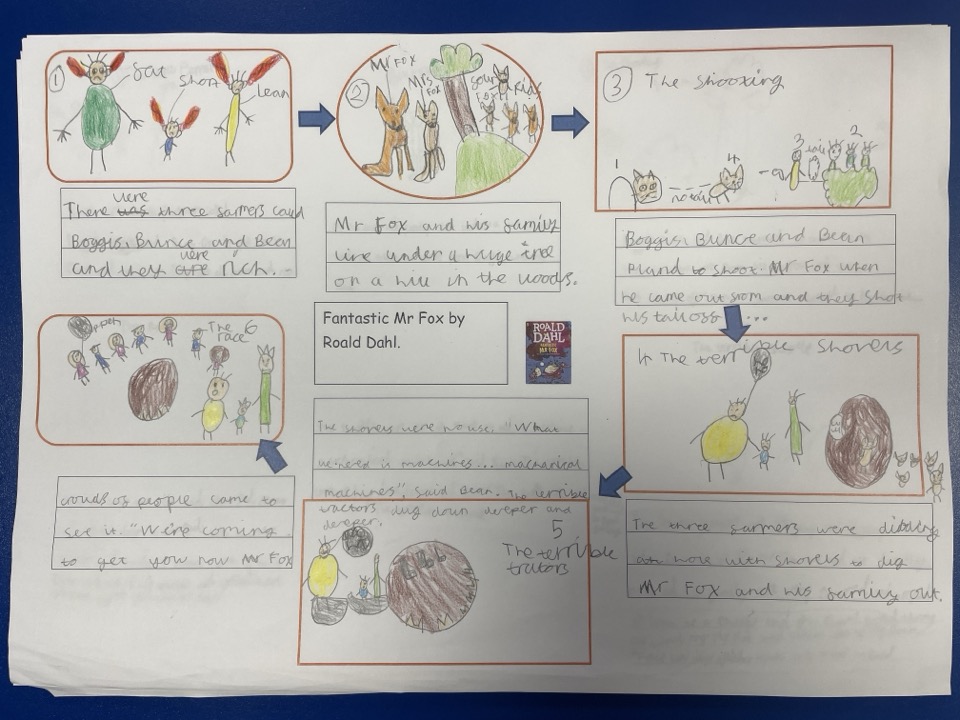 1
fat
short
lean
were
There was three farmers could
Boggis, Bunce and Bean
were
and they are rich.
2
Mr Fox
Mrs Fox
four fox kids
Mr Fox and his family
live under a huge tree
on a hill in the woods.
3 The shooting
1
4
3
2
Boggis, Bunce and Bean
pland to shoot Mr Fox when
he came out from and they shot
his tail off ...
4 The terrible shovels
The three farmers were
at hole with shovels to dig
Mr Fox and his family out.
Fantastic Mr Fox by
Roald Dahl.
ROALD
DAHL
FANTASTIC
MR FOX
The shovels were no use. "What
we need is machines... machanical
machines", said Bean. The terrible
tractors dug down deeper and
deeper.
5
The terrible
trators
The race 6
crouds of people came to
see it. "We're coming
to get you now Mr Fox